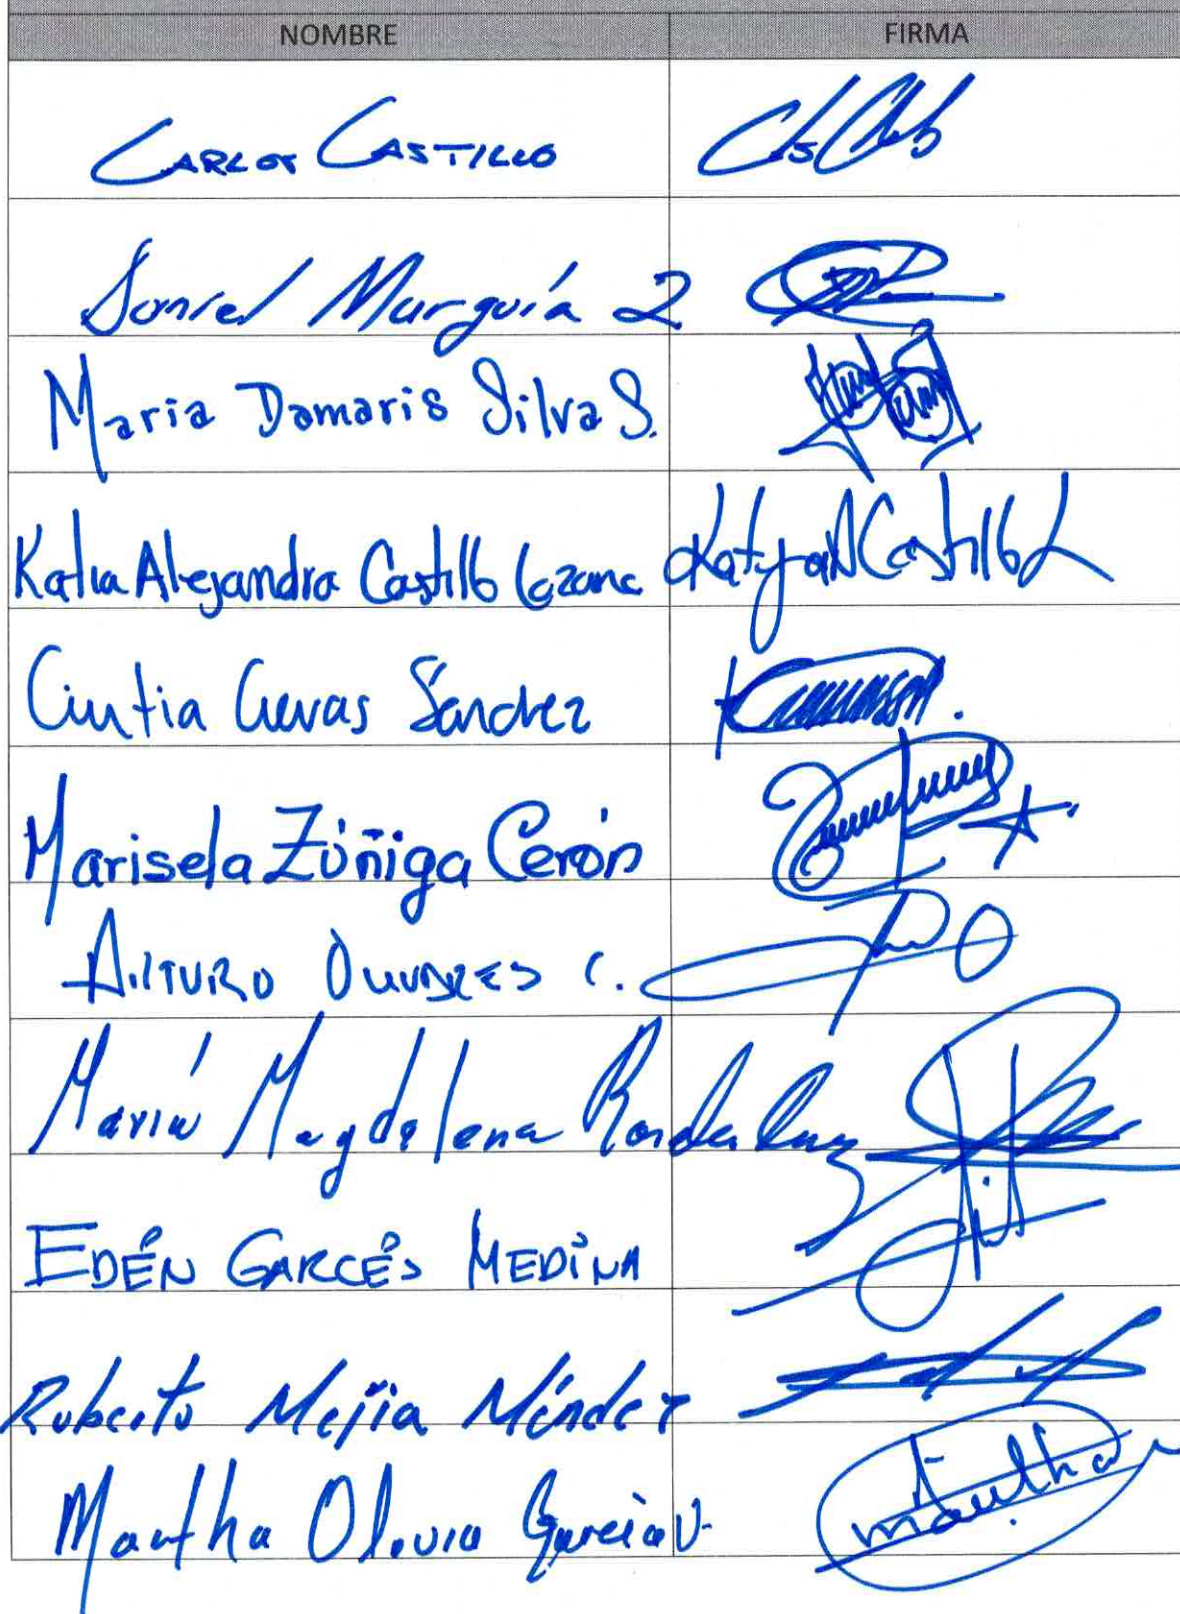 NOMBRE FIRMA
CARLOS CASTILLO
Daniel Murguía
Maria Damaris Silva S.
Katia Alejandra Castillo Lozano KatyaACastilloL
Cintia Cuevas Sánchez
Marisela Zúñiga Cerón
ARTURO OLIVARES C.
María Magdalena
EDÉN GARCÉS MEDINA
Roberto Mejía Méndez
Martha Olivia García V. Martha